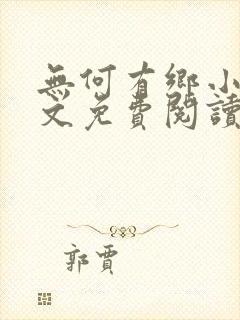 無何有鄉小
文免費閱讀
郭賈